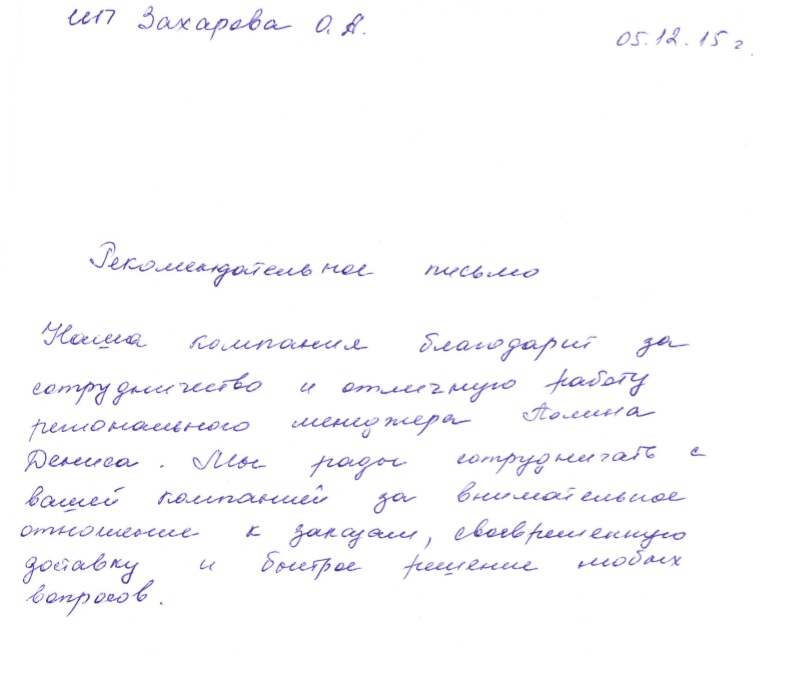 ИП Захарова О.А.
05.12.15 г.
Рекомендательное письмо
Наша компания благодарит за
сотрудничество и отличную работу
регионального менеджера
Дениса. Мы рады сотрудничать с
вашей компанией за внимательное
отношение к заказам, своевременную
доставку и быстрое решение любых
вопросов.